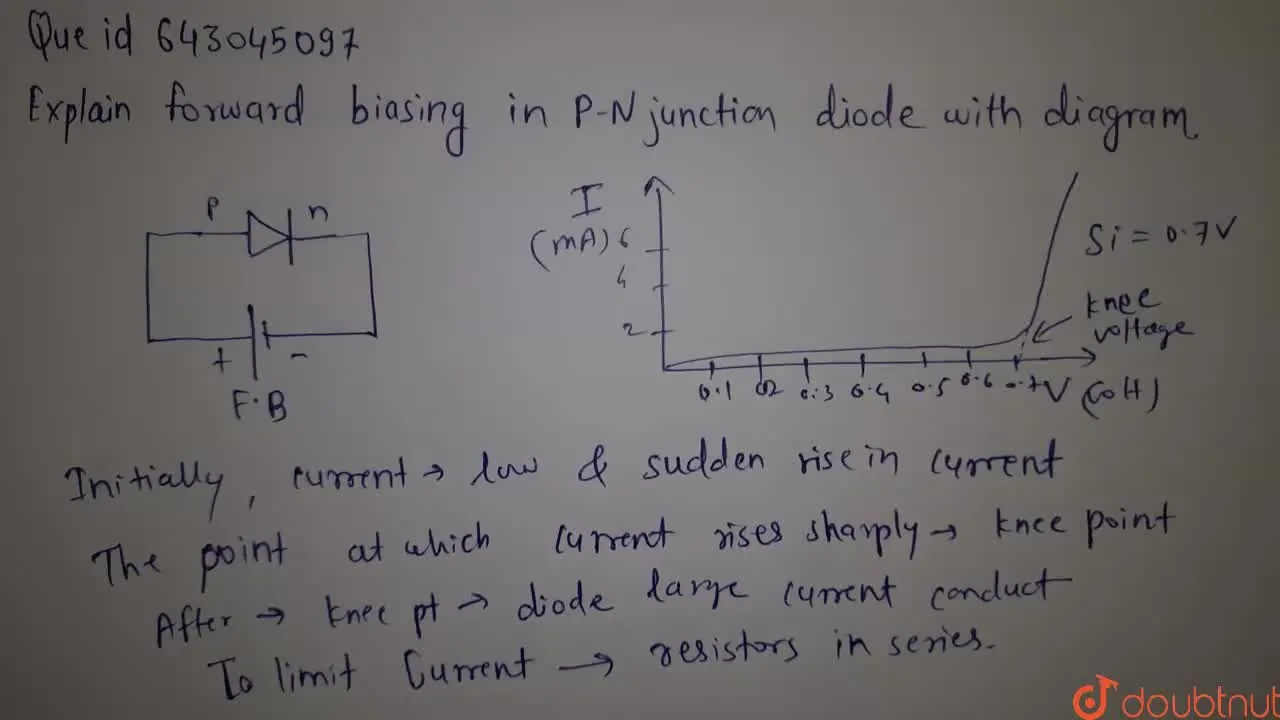 Que id 643045097
Explain forward biasing in P-N junction diode with diagram.
P n
+ -
F.B
I
(mA) 6
4
2
0.1 0.2 0.3 0.4 0.5 0.6 0.7 V
Si = 0.7V
knee
voltage
Initially, current → low & sudden rise in current
The point at which current rises sharply → knee point
After → knee pt → diode large current conduct
To limit Current → resistors in series.
doubtnut